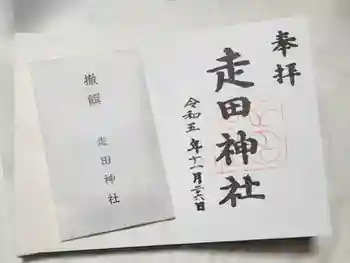 奉拝
走田神社
令和五年十一月二六日
撤饌
走田神社